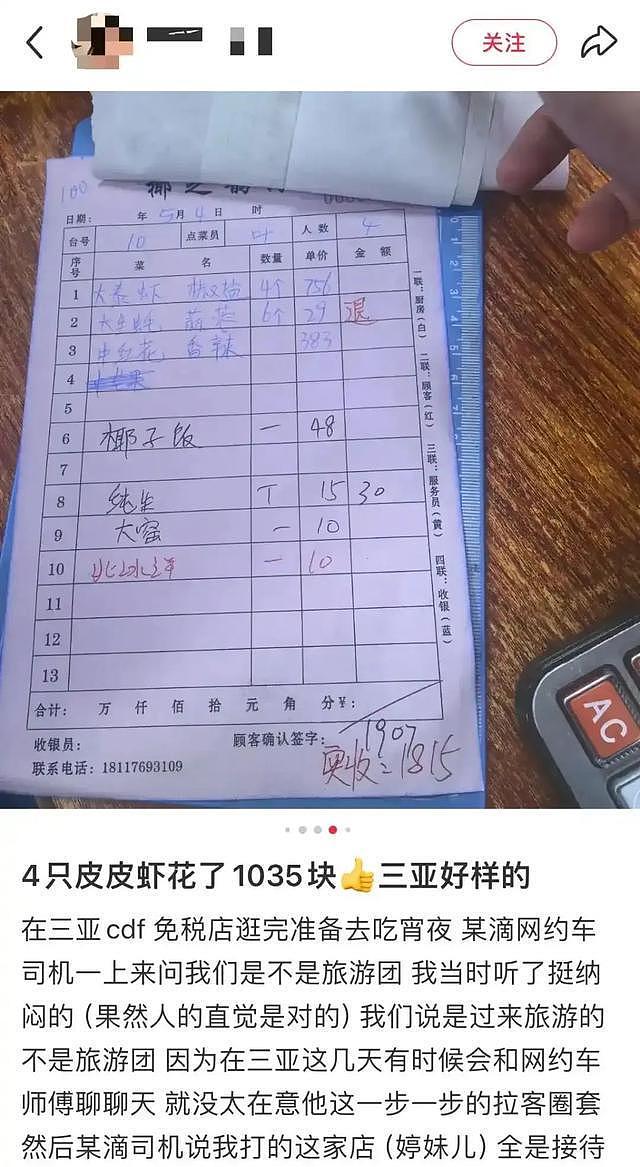 关注
100
日期： 年 5月 4日 时
台号 10 点菜员 叶 人数 4
序号 菜名 数量 单价 金额
1 大泰虾 椒盐 4个 756
2 大生蚝 蒜蓉 6个 29 退
3 中红花 香辣 383
4
5
6 椰子饭 一 48
7
8 纯生 T 15 30
9 大窑 一 10
10 一 10
11
12
13
合计： 万 仟 佰 拾 元 角 分￥：
收银员： 顾客确认签字：
1907
联系电话：18117693109
实收=1815
一联：厨房（白） 二联：顾客（红） 三联：服务员（黄） 四联：收银（蓝）
AC
4只皮皮虾花了1035块👍三亚好样的
在三亚cdf 免税店逛完准备去吃宵夜 某滴网约车
司机一上来问我们是不是旅游团 我当时听了挺纳
闷的（果然人的直觉是对的）我们说是过来旅游的
不是旅游团 因为在三亚这几天有时候会和网约车
师傅聊聊天 就没太在意他这一步一步的拉客圈套
然后某滴司机说我打的这家店（婷妹儿）全是接待